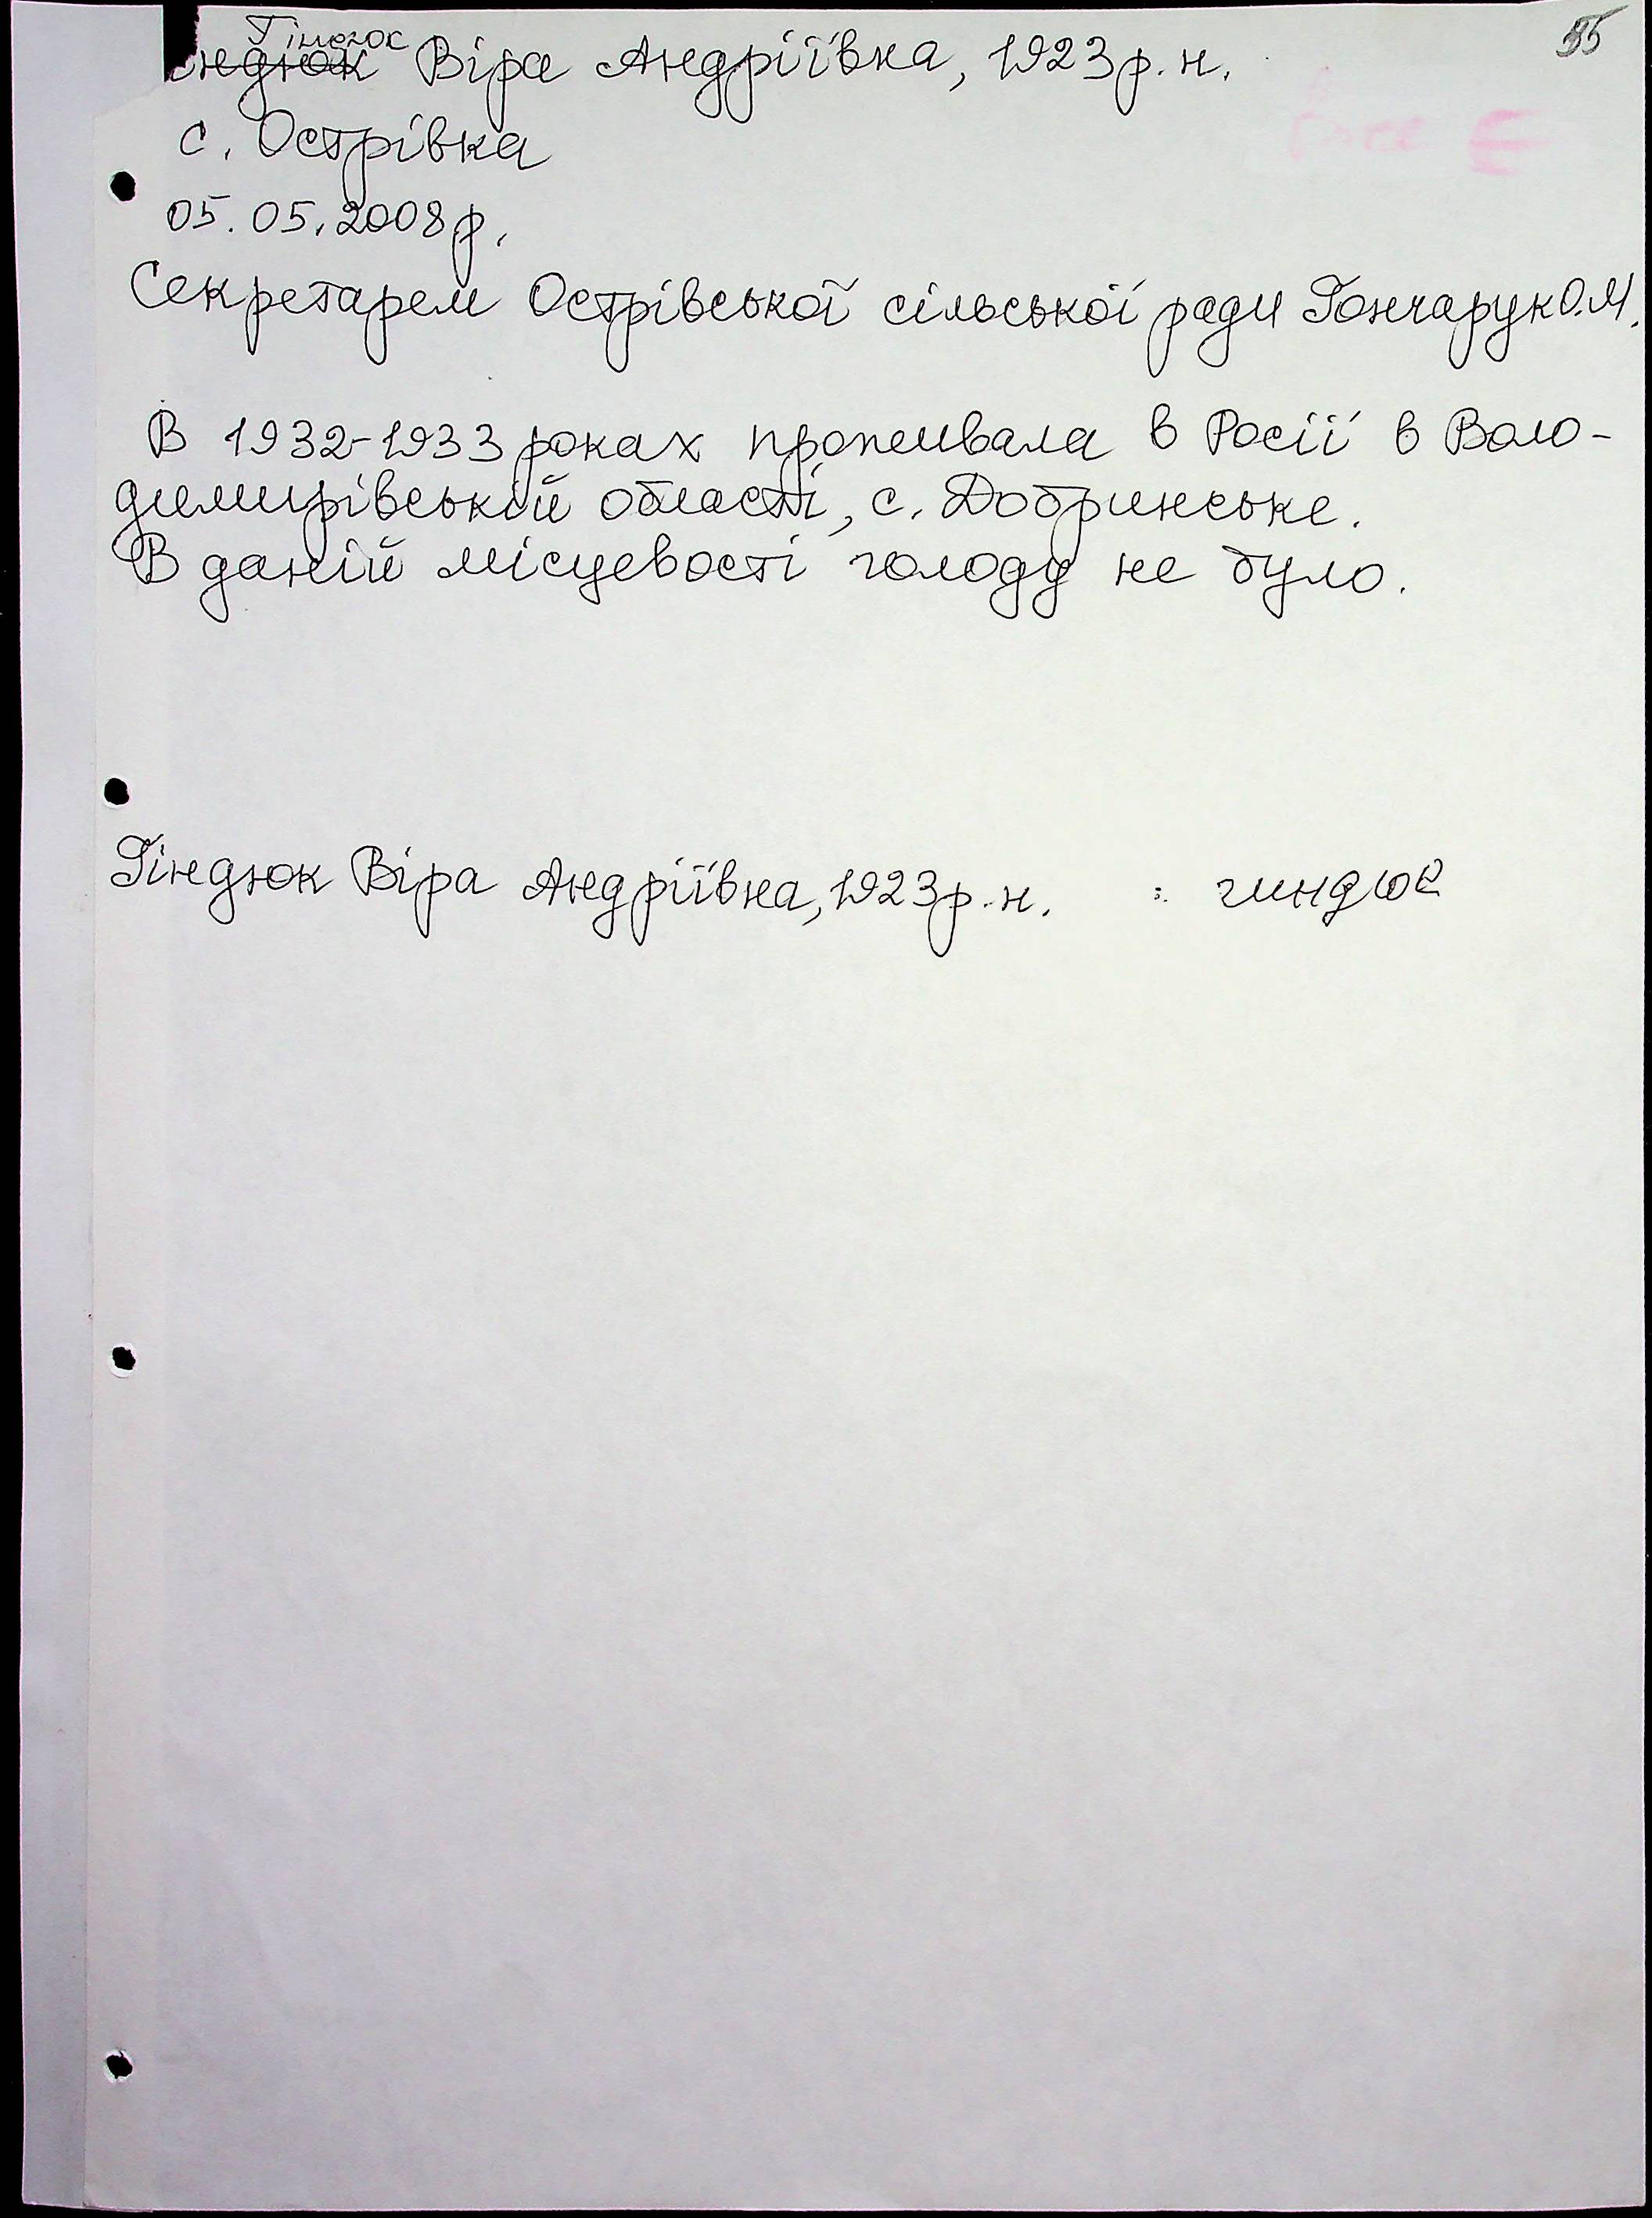 55
Гіндюк
індюк Віра Андріївна, 1923 р. н.
с. Острівка
05.05.2008 р.
Секретарем Острівської сільської ради Гончарук О.М.
В 1932-1933 роках проживала в Росії в Воло-
димирівській області, с. Добринське.
В даній місцевості голоду не було.
Гіндюк Віра Андріївна, 1923 р. н. гиндюк